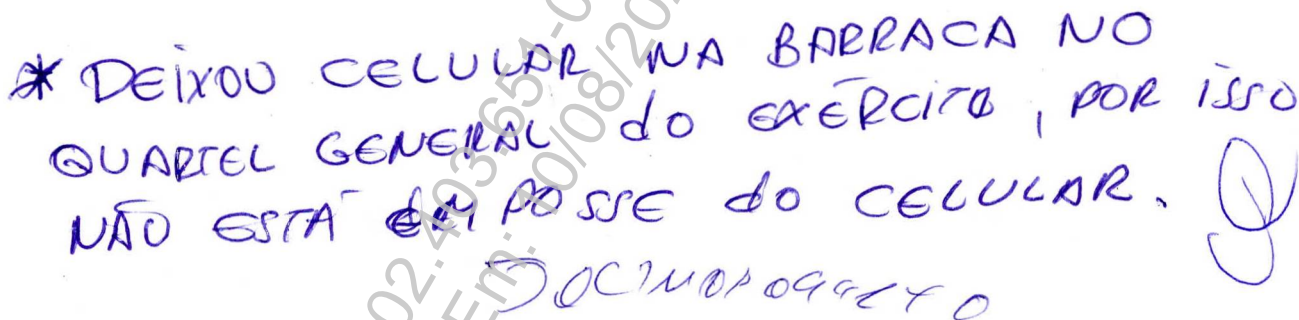 * DEIXOU CELULAR NA BARRACA NO
QUARTEL GENERAL do EXÉRCITO, POR ISSO
NÃO ESTÁ EM POSSE do CELULAR.